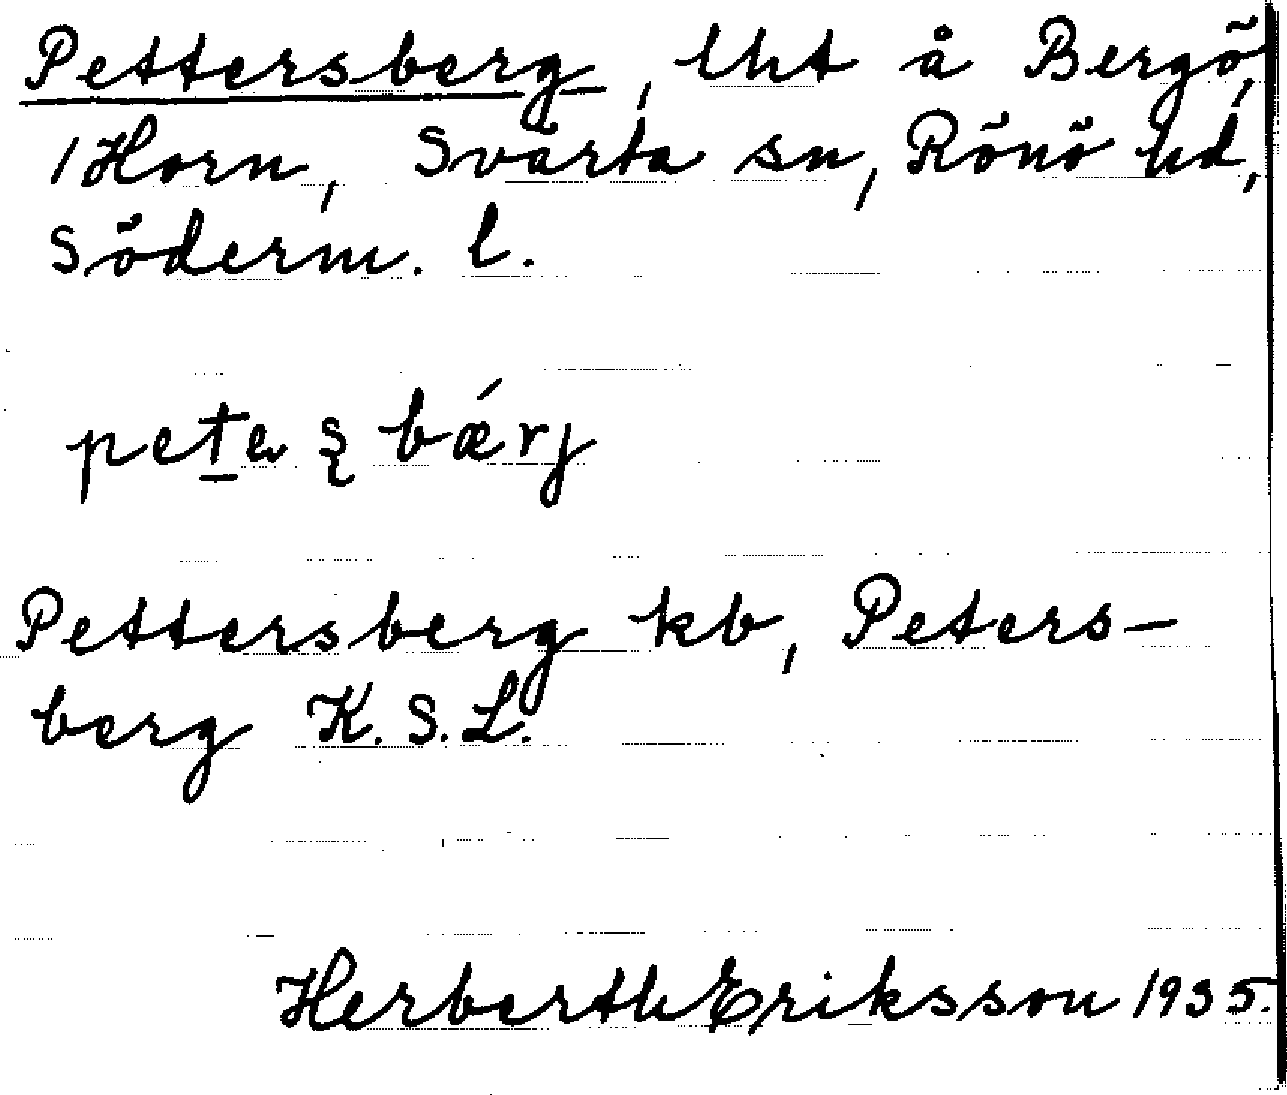 Pettersberg, lht å Bergö,
1 Horn, Svärta sn, Rönö hd,
Söderm. l.
bǽrj
Pettersberg kb, Peters-
berg K. S. L.
Herberth Eriksson 1935.